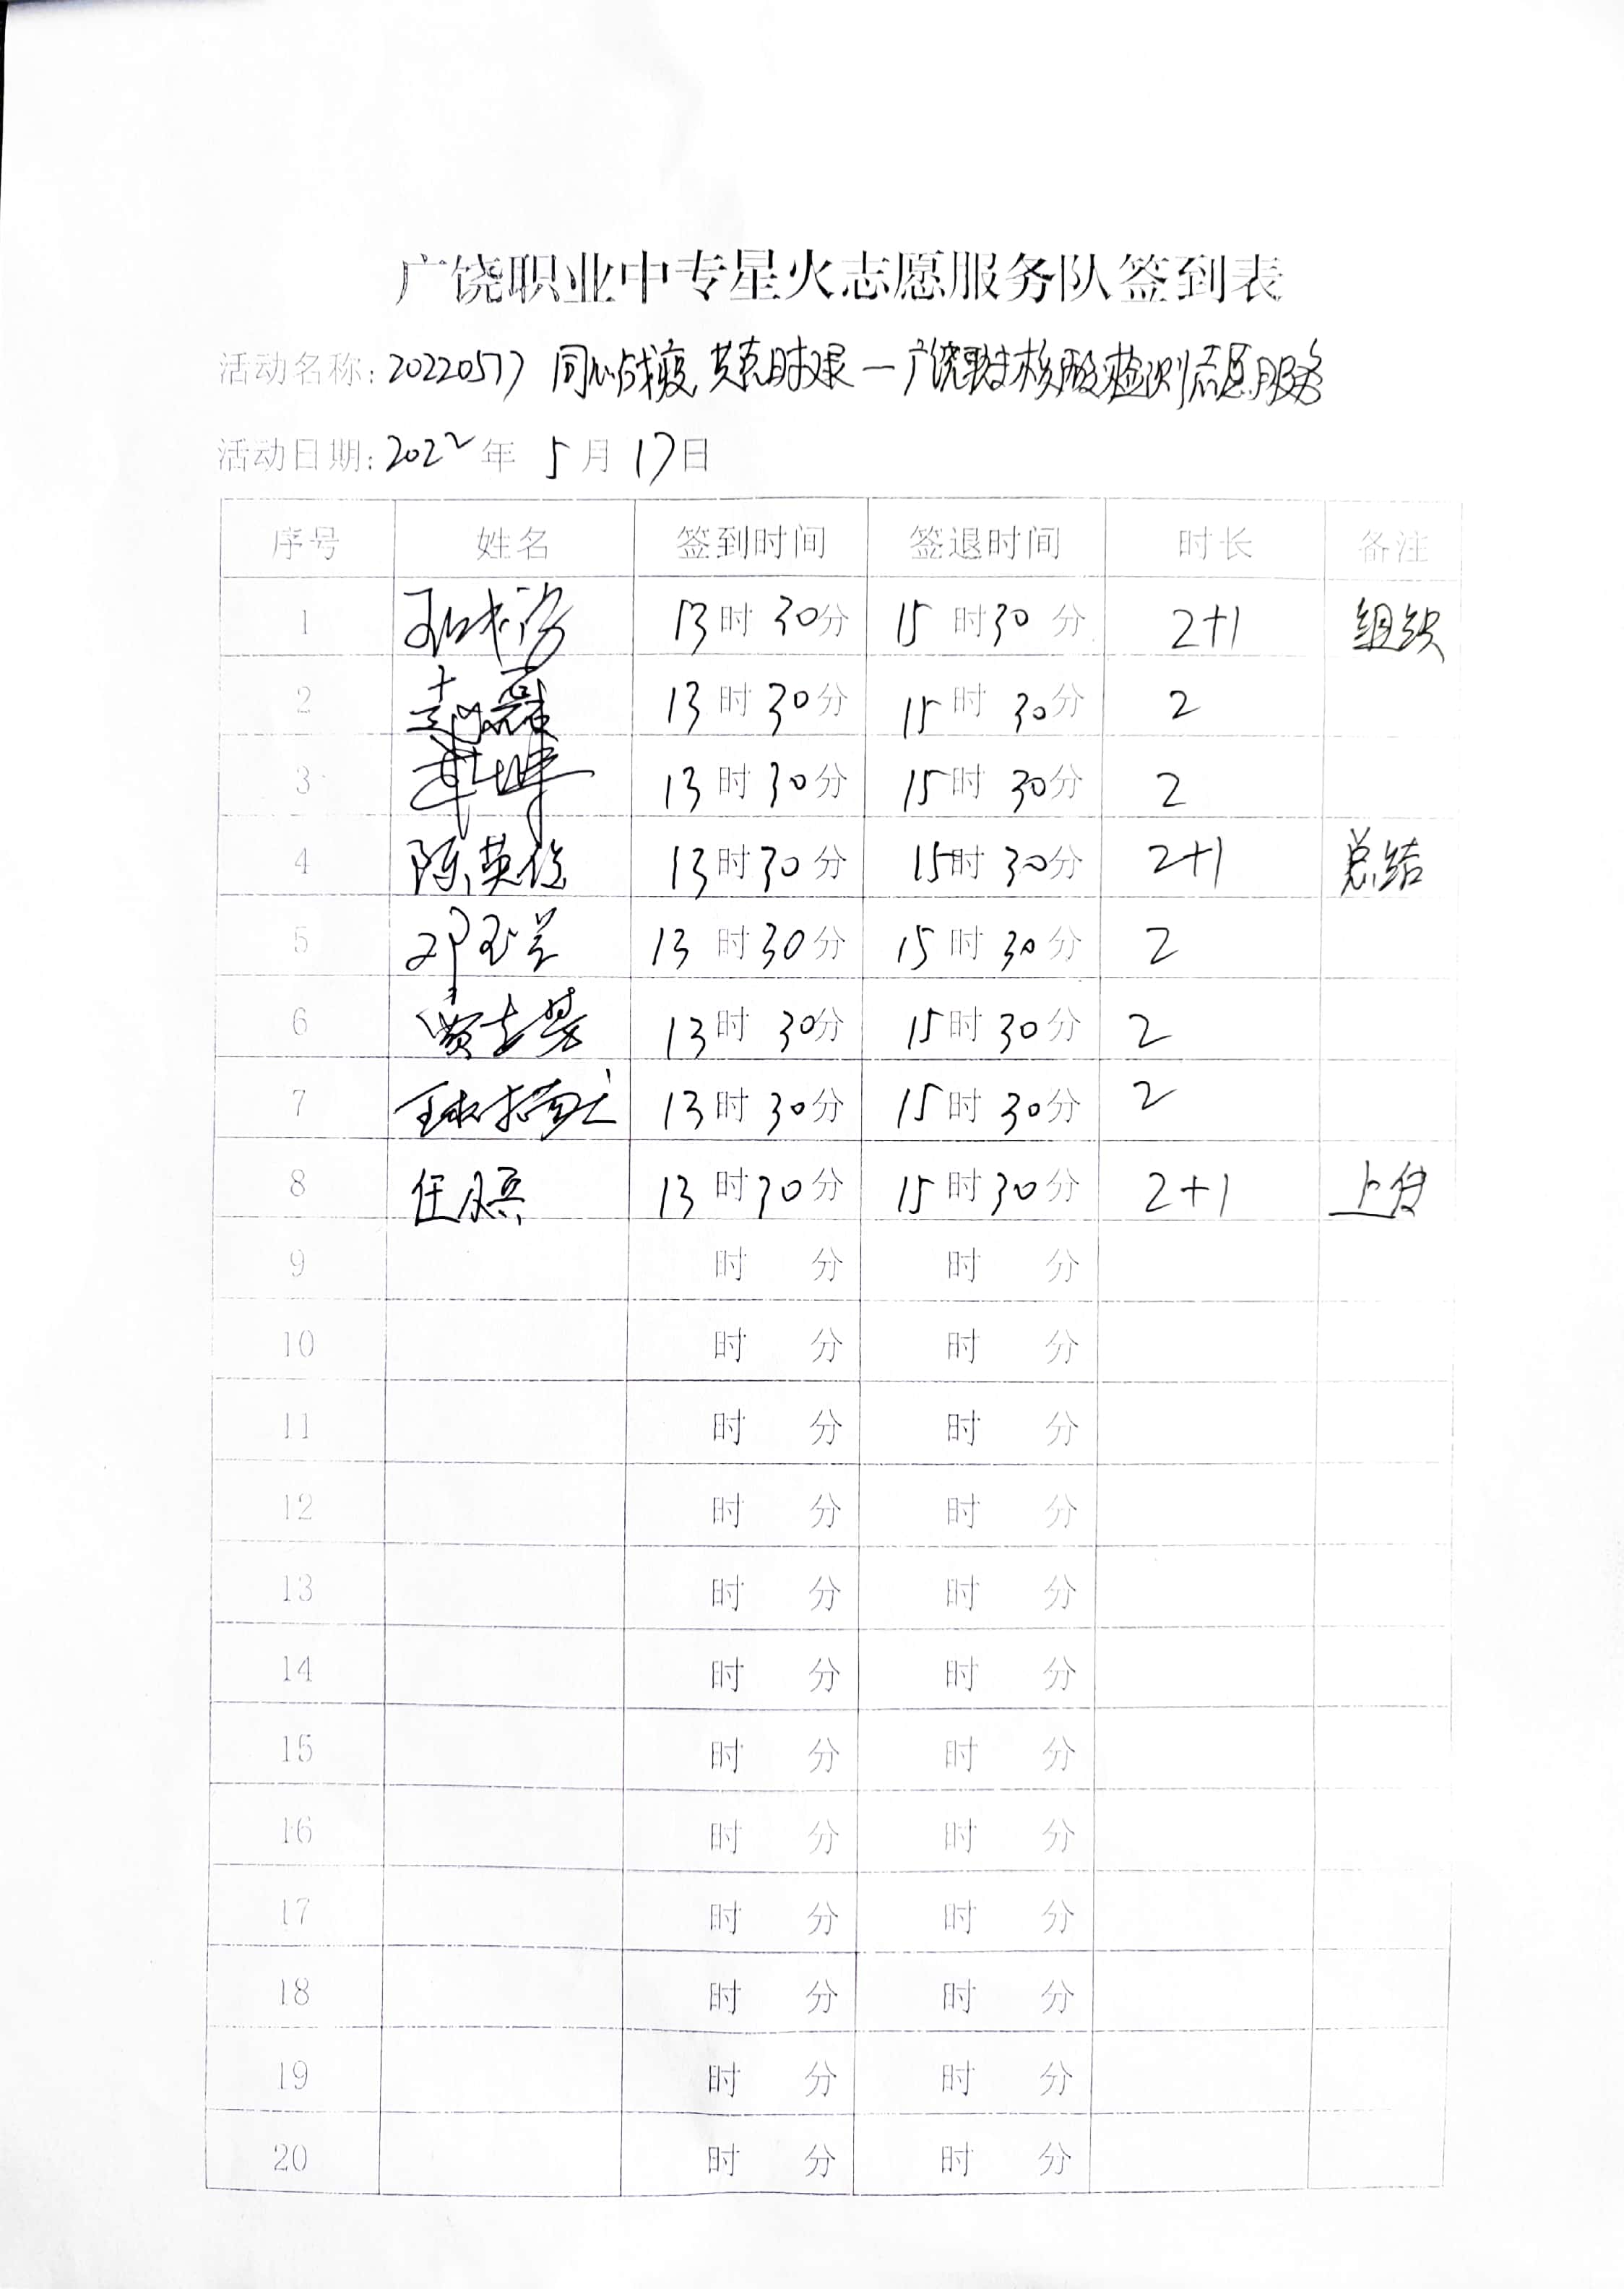 广饶职业中专星火志愿服务队签到表
活动名称: 20220517 同心战疫 共克时艰—广饶职专核酸检测志愿服务
活动日期: 2022 年 5 月 17 日
序号 姓名 签到时间 签退时间 时长 备注
1 13 时 30 分 15 时 30 分 2+1 组织
2 赵磊 13 时 30 分 15 时 30 分 2
3 13 时 30 分 15 时 30 分 2
4 陈英俊 13 时 30 分 15 时 30 分 2+1 总结
5 邓玉兰 13 时 30 分 15 时 30 分 2
6 13 时 30 分 15 时 30 分 2
7 13 时 30 分 15 时 30 分 2
8 13 时 30 分 15 时 30 分 2+1 上传
9 时 分 时 分
10 时 分 时 分
11 时 分 时 分
12 时 分 时 分
13 时 分 时 分
14 时 分 时 分
15 时 分 时 分
16 时 分 时 分
17 时 分 时 分
18 时 分 时 分
19 时 分 时 分
20 时 分 时 分